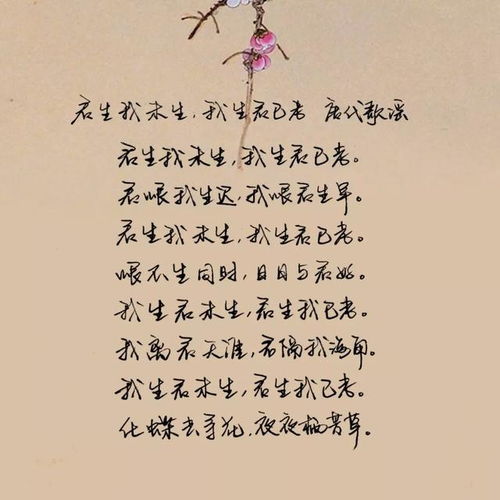 君生我未生，我生君已老 唐代歌谣
君生我未生，我生君已老。
君恨我生迟，我恨君生早。
君生我未生，我生君已老。
恨不生同时，日日与君好。
我生君未生，君生我已老。
我离君天涯，君隔我海角。
我生君未生，君生我已老。
化蝶去寻花，夜夜栖芳草。